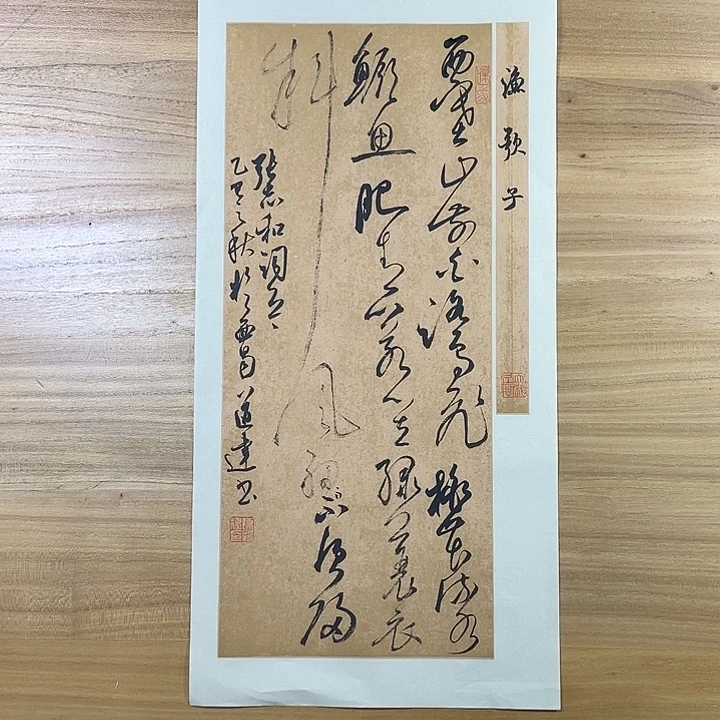 漁歌子
西塞山前白鹭飛桃花流水
鳜魚肥青箬笠綠蓑衣
斜風細雨不須歸
張志和詞
乙亥之秋於西昌道達书